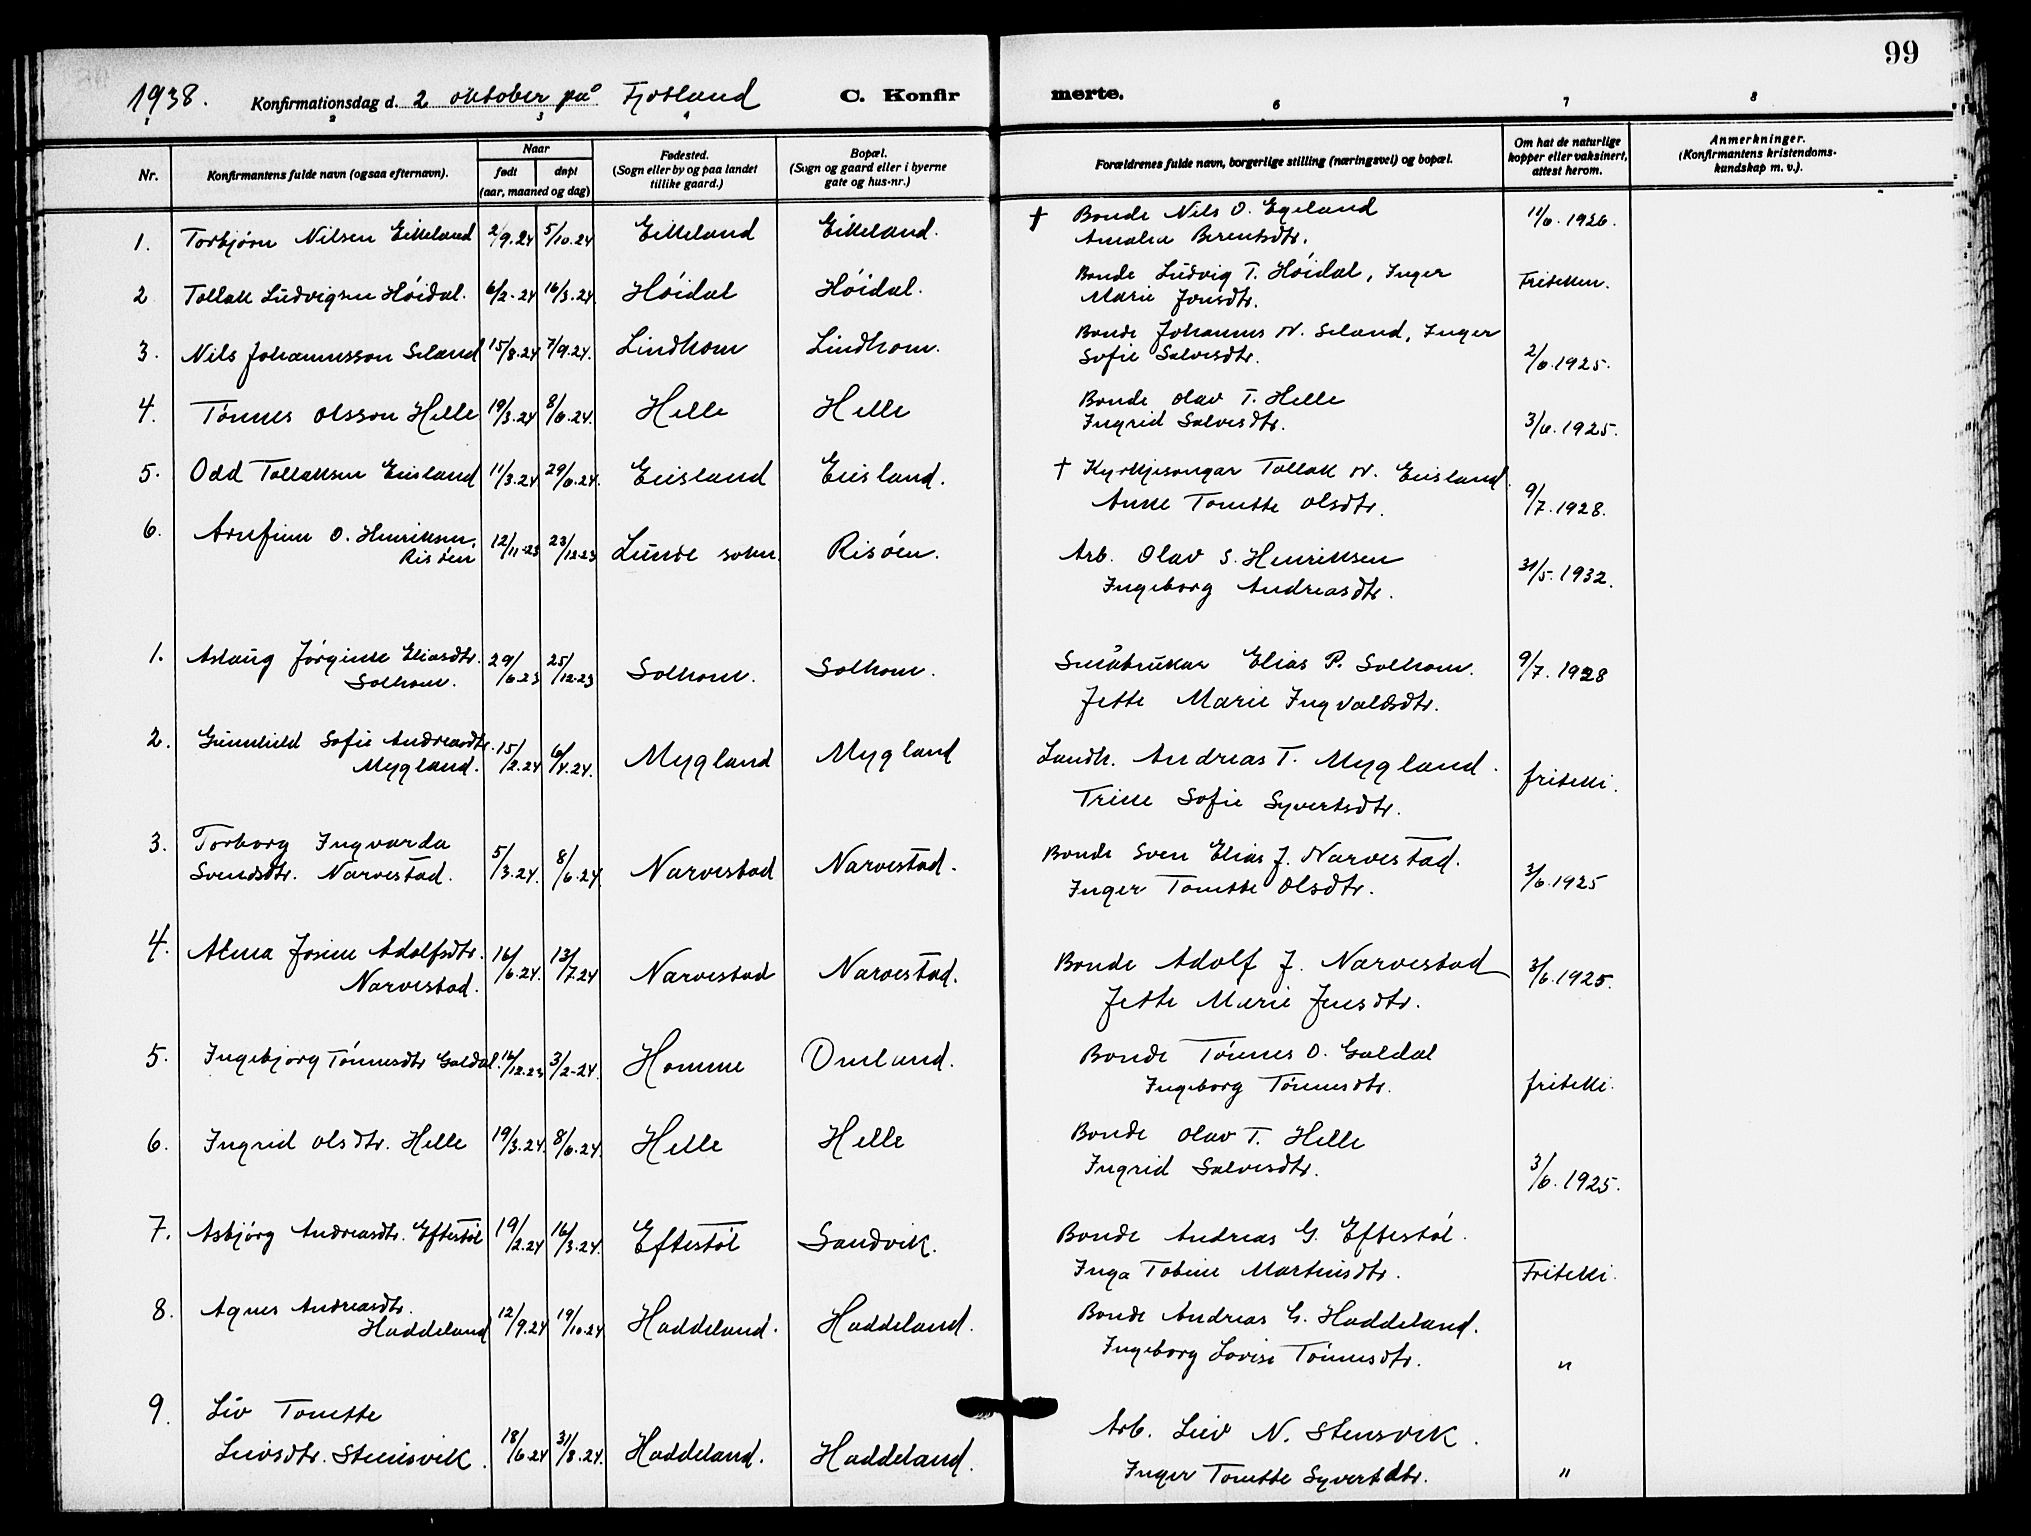 99
1938. Konfirmationsdag d. 2 oktober på Fjotland C. Konfirmerte.
1 2 3 4 6 7 8
Nr. Konfirmantens fulde navn (ogsaa efternavn). Naar født døpt (aar, maaned og dag) Fødested. (Sogn eller by og paa landet tillike gaard.) Bopæl. (Sogn og gaard eller i byerne gate og hus-nr.) Forældrenes fulde navn, borgerlige stilling (næringsvei) og bopæl. Om hat de naturlige kopper eller vaksinert, attest herom. Anmerkninger. (Konfirmantens kristendomskundskap m. v.).
1. Torbjörn Nilsen Eikeland 2/9.24 5/10.24 Eikeland Eikeland. † Bonde Nils O. Egeland 11/6.1926.
Amalia Berentsdtr.
2 Tollak Ludvigsen Höidal. 6/2-24 16/3.24. Höidal Höidal. Bonde Ludvig T. Höidal, Inger Fritekken.
Marie Jonsdtr.
3. Nils Johannesson Seland 15/8.24 7/9.24. Lindhom Lindhom. Bonde Johannes N. Seland, Inger
Sofie Salvesdtr. 2/6.1925.
4. Tönnes Olsson Helle 19/3.24 8/6.24. Helle Helle Bonde Olav T. Helle
Ingrid Salvesdtr. 3/6.1925.
5. Odd Tollaksen Eiesland 11/3.24 29/6.24. Eiesland Eiesland. † Kyrkjesongar Tollak N. Eiesland.
Anne Tomette Olsdtr. 9/7.1928.
6. Arnfinn O. Henriksen, 12/11-23 23/12-23 Lunde sokn. Risöen. Arb. Olav S. Henriksen 31/5.1932.
Risöen
Ingeborg Andreasdtr.
1. Aslaug Jörgine Eliasdtr. 29/6.23 25/12-23 Solhom. Solhom. Småbrukar Elias P. Solhom. 9/7.1928
Solhom.
Jette Marie Ingvaldsdtr.
2. Gunnhild Sofie Andreasdtr. 15/2.24 6/4.24. Mygland Mygland Landh. Andreas T. Mygland. fritekke.
Mygland.
Trine Sofie Syvertsdtr.
3. Torborg Ingvarda 5/3.24. 8/6.24. Narvestad Narvestad. Bonde Sven Elias J. Narvestad. 3/6.1925
Svendsdtr. Narvestad.
Inger Tomette Olsdtr.
4. Alma Josine Adolfsdtr. 16/6.24. 13/7.24 Narvestad Narvestad. Bonde Adolf J. Narvestad 3/6.1925.
Narvestad.
Jette Marie Jensdtr.
5. Ingebjorg Tönnesdtr Galdal. 16/12.23 3/2-24. Homme Omland. Bonde Tönnes O. Galdal fritekke.
Ingeborg Tönnesdtr.
6. Ingrid Olsdtr. Helle 19/3.24. 8/6.24. Helle Helle Bonde Olav T. Helle
Ingrid Salvesdtr. 3/6.1925.
7. Asbjörg Andreasdtr. Eftestöl 19/2.24 16/3.24. Eftestöl Sandvik. Bonde Andreas G. Eftestöl.
Inga Tobine Martinsdtr. Fritekke.
8. Agnes Andreasdtr. 12/9.24 19/10.24 Haddeland. Haddeland. Bonde Andreas G. Haddeland. "
Haddeland
Ingeborg Lovise Tönnesdtr.
9. Liv Tomette 18/6.24 31/8.24. Haddeland. Haddeland. Arb. Liev N. Stensvik. "
Lievsdtr. Steinsvik.
Inger Tomette Syvertsdtr.